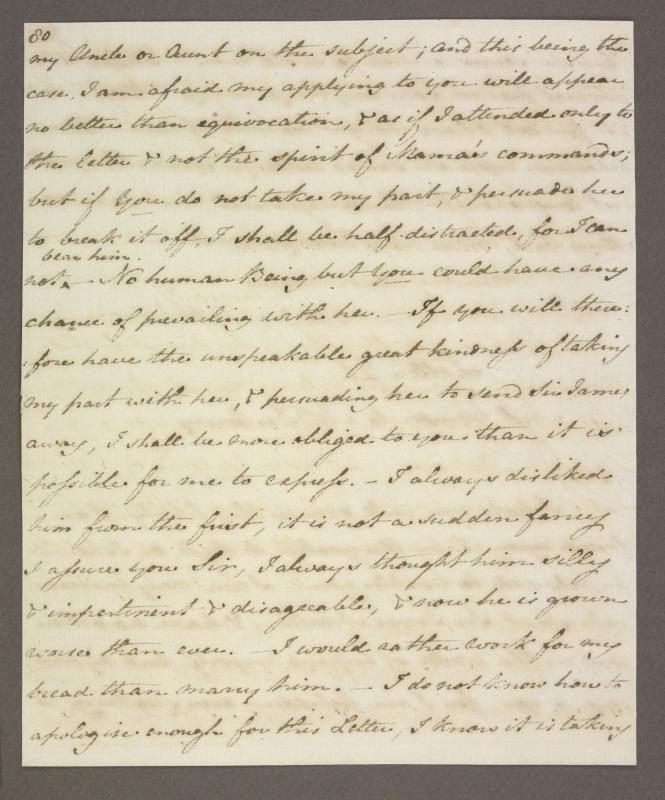 80
my Uncle or Aunt on the subject; and this being the
case, I am afraid my applying to you will appear
no better than equivocation, & as if I attended only to
the letter & not the spirit of Mama's commands;
but if You do not take my part, & persuade her
to break it off, I shall be half distracted, for I can
bear him.
not — No human Being but You could have any
chance of prevailing with her. — If you will there:
:fore have the unspeakable great kindness of taking
my part with her, & persuading her to send Sir James
away, I shall be more obliged to you than it is
possible for me to express. — I always disliked
him from the first, it is not a sudden fancy
I assure you Sir, I always thought him silly
& impertinent & disagreable, & now he is grown
worse than ever. — I would rather work for my
bread than marry him. — I do not know how to
apologise enough for this Letter, I know it is taking